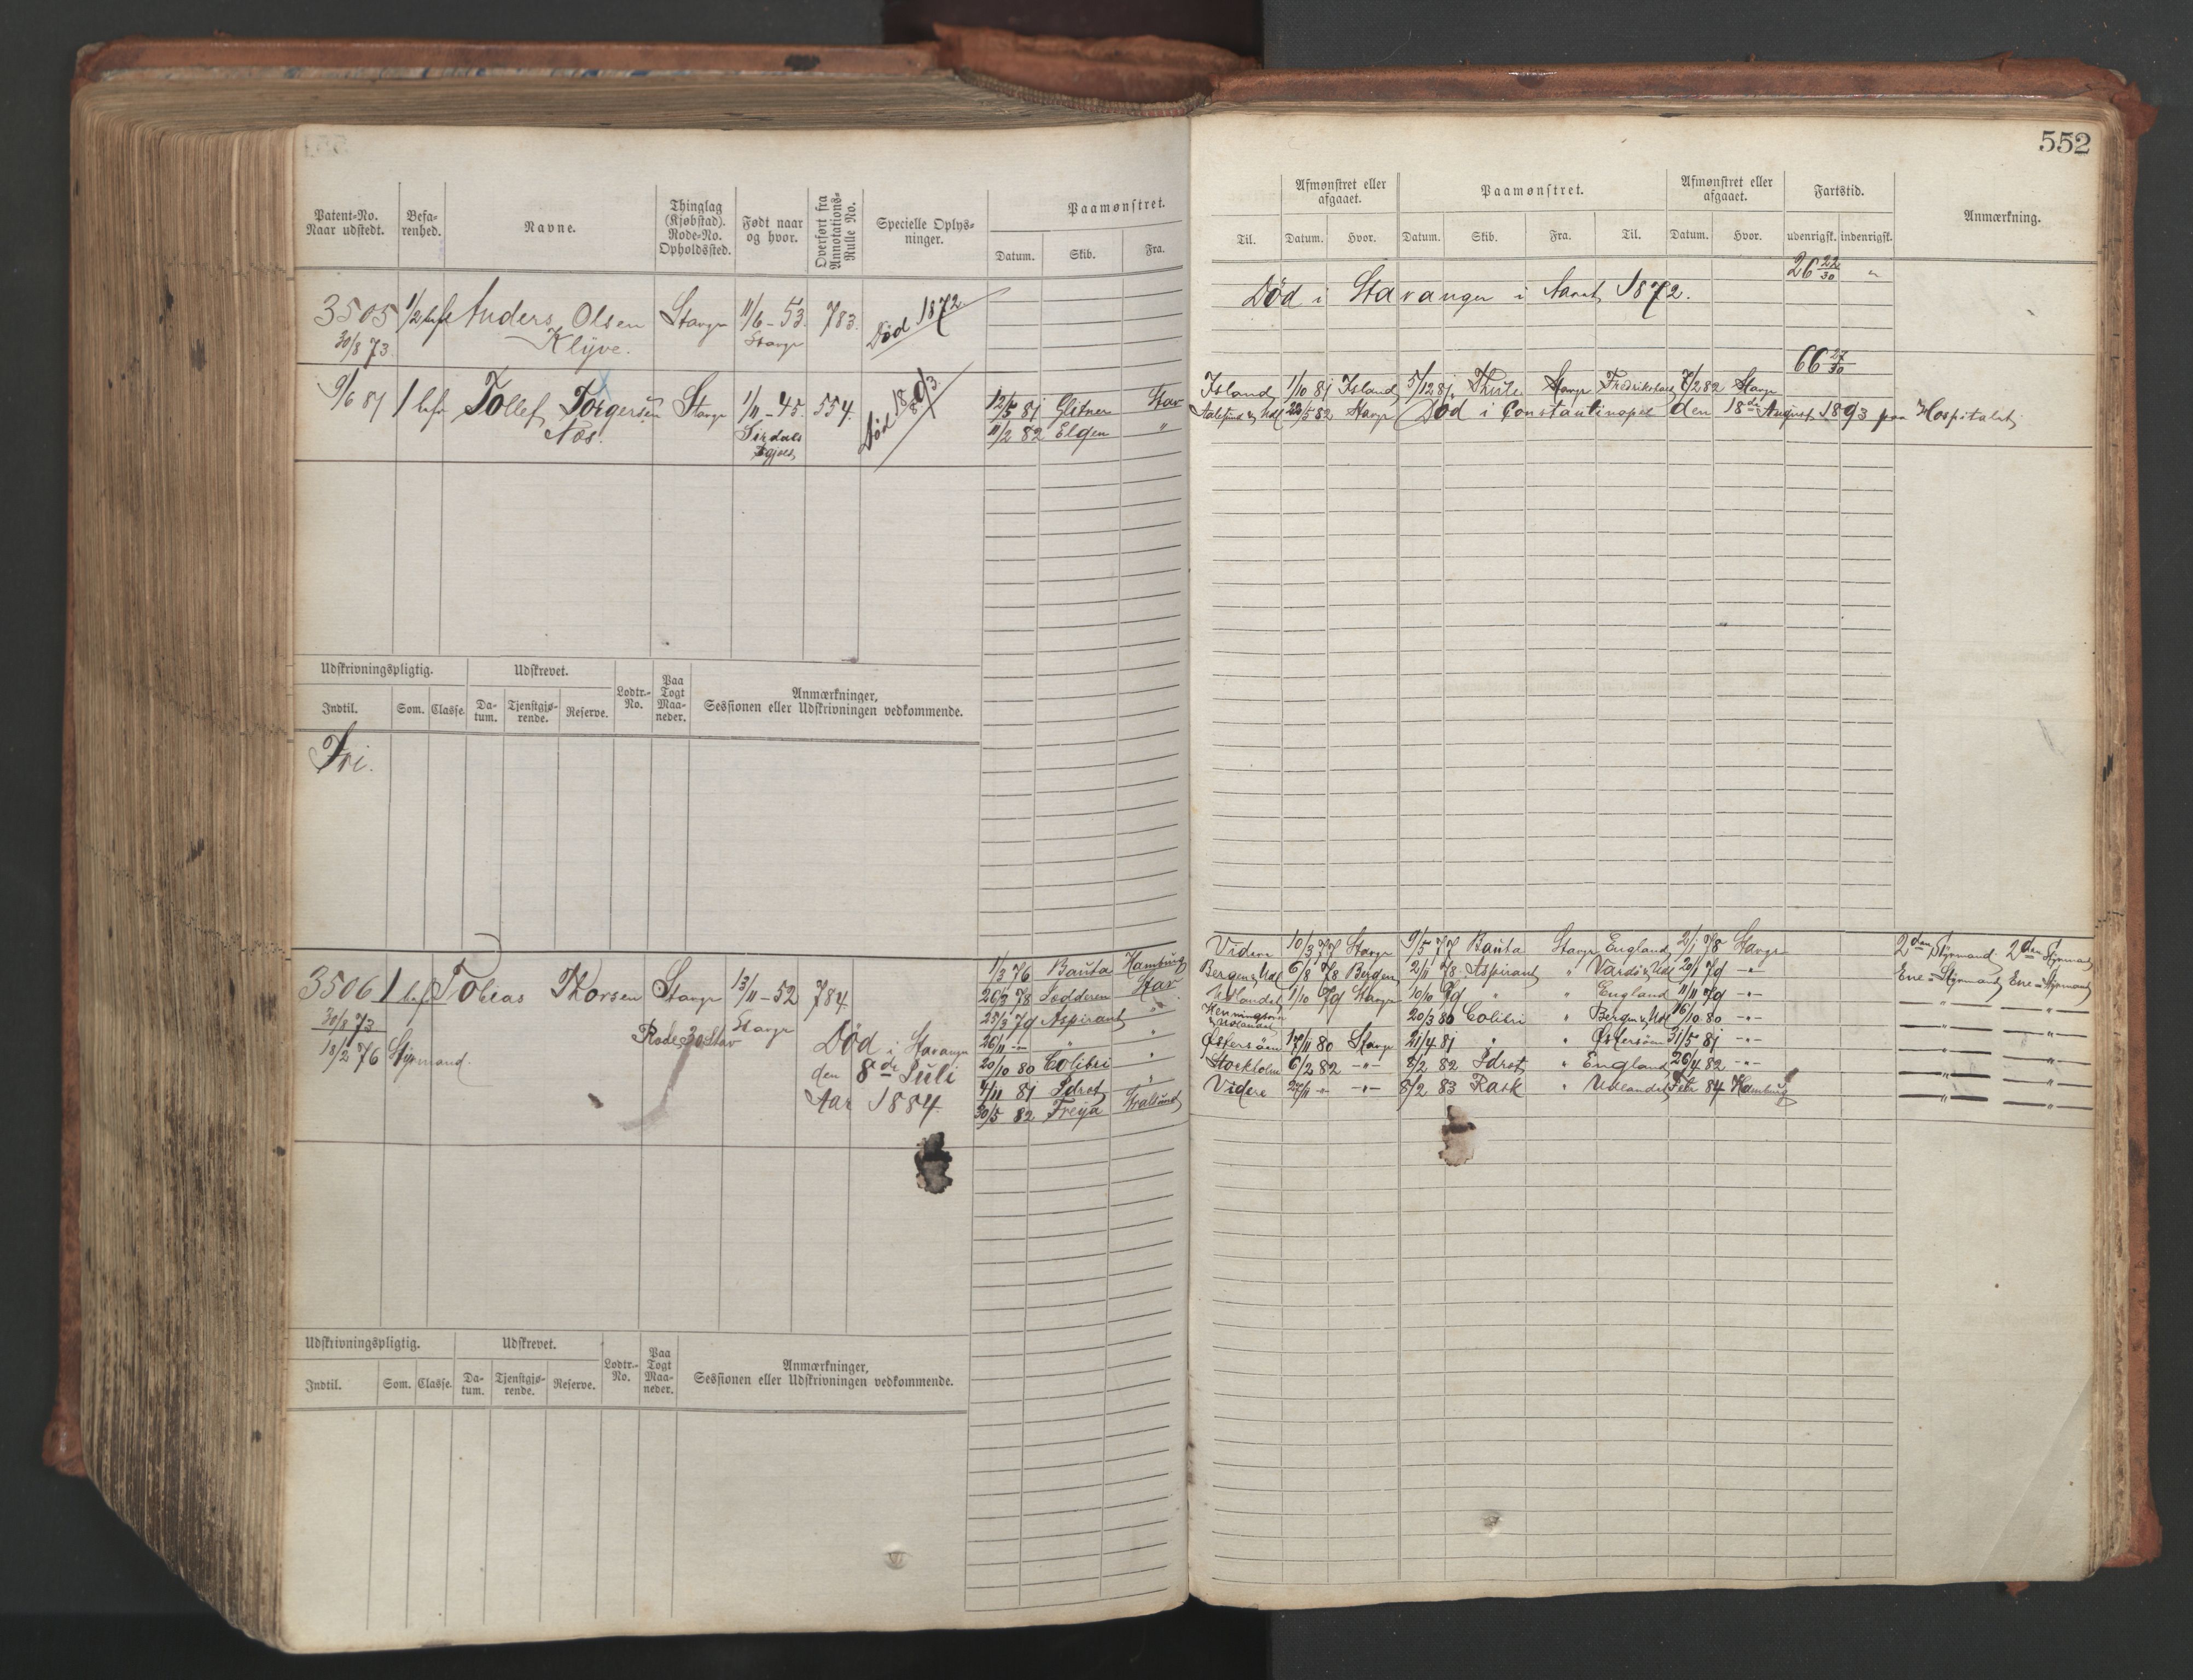 552
Patent-No. Naar udstedt.
Befarenhed.
Navne.
Thinglag (Kjøbstad). Rode-No. Opholdssted.
Født naar og hvor.
Overført fra Annotations-Rulle No.
Specielle Oplysninger.
Paamønstret.
Datum. Skib. Fra.
Til.
Afmønstret eller afgaaet.
Datum. Hvor.
Paamønstret.
Datum. Skib. Fra. Til.
Afmønstret eller afgaaet.
Datum. Hvor.
Fartstid.
udenrigsk. indenrigsk.
Anmærkning.
3505 1/2 bef Anders Olsen Stavgr 11/6-53. 783. Død 1872.
30/8 73. Klyve. Stavgr
Død i Stavanger i Aaret 1872.
26 22/30 "
66 27/30
9/6 81 1 bef Tollef Torgersen Stavgr 1/11-45. 554. Død 18 8/93
Næs. Sirdals
12/5 81 Glitner Stav
11/2 82 Elgen "
Island 1/10 81 Island 5/12 81 Thule Stavgr Fredrikstad 7/2 82 Stavgr
22/5 82 Stavgr Død i Constantinopel den 18de August 1893 paa Hospitalet
Udskrivningspligtig. Udskrevet. Lodtr.-No. Paa Togt Maaneder. Anmærkninger, Sessionen eller Udskrivningen vedkommende.
Indtil. Som. Classe. Datum. Tjenstgjørende. Reserve.
Fri.
3506 1 bef Tobias Thorsen Stavgr 13/11-52 784
30/8 73 Rode 30 Stav Stavgr
18/2 76 Styrmand.
Død i Stavanger
den 8de Juli
Aar 1884
1/3 76 Bauta Hamburg
26/3 78 Stav
23/3 79 Aspirant "
26/11 -- " "
20/10 80 Colibri "
4/11 81 Idrot "
30/5 82 Freya
Videre 10/3 77 Stavgr 9/5 77 Bauta Stavgr England 2/1 78 Stavgr 2den Styrmand 2den Styrmand
Bergen & Udl 6/8 78 Bergen 2/11 78 Aspirant " Vardö & Udl 20/1 79 -"- Ene-Styrmand Ene-Styrmand
Udlandet 1/10 79 Stavgr 10/10 79 " " England 11/11 79 -"- —"— —"—
& Udlandet 20/3 80 Colibri " Bergen & Udl 16/10 80 -"- —"— —"—
Østersöen 17/11 80 Stavgr 21/4 81 " " Østersöen 31/5 81 -"- —"— —"—
Stockholm 6/2 82 -"- 8/2 82 Idrot " England 26/4 82 -"- —"— —"—
Videre 27/11 " -"- 8/2 83 Rask " Udlandet Febr 84 Hamburg —"— —"—
Udskrivningspligtig. Udskrevet. Lodtr.-No. Paa Togt Maaneder. Anmærkninger, Sessionen eller Udskrivningen vedkommende.
Indtil. Som. Classe. Datum. Tjenstgjørende. Reserve.